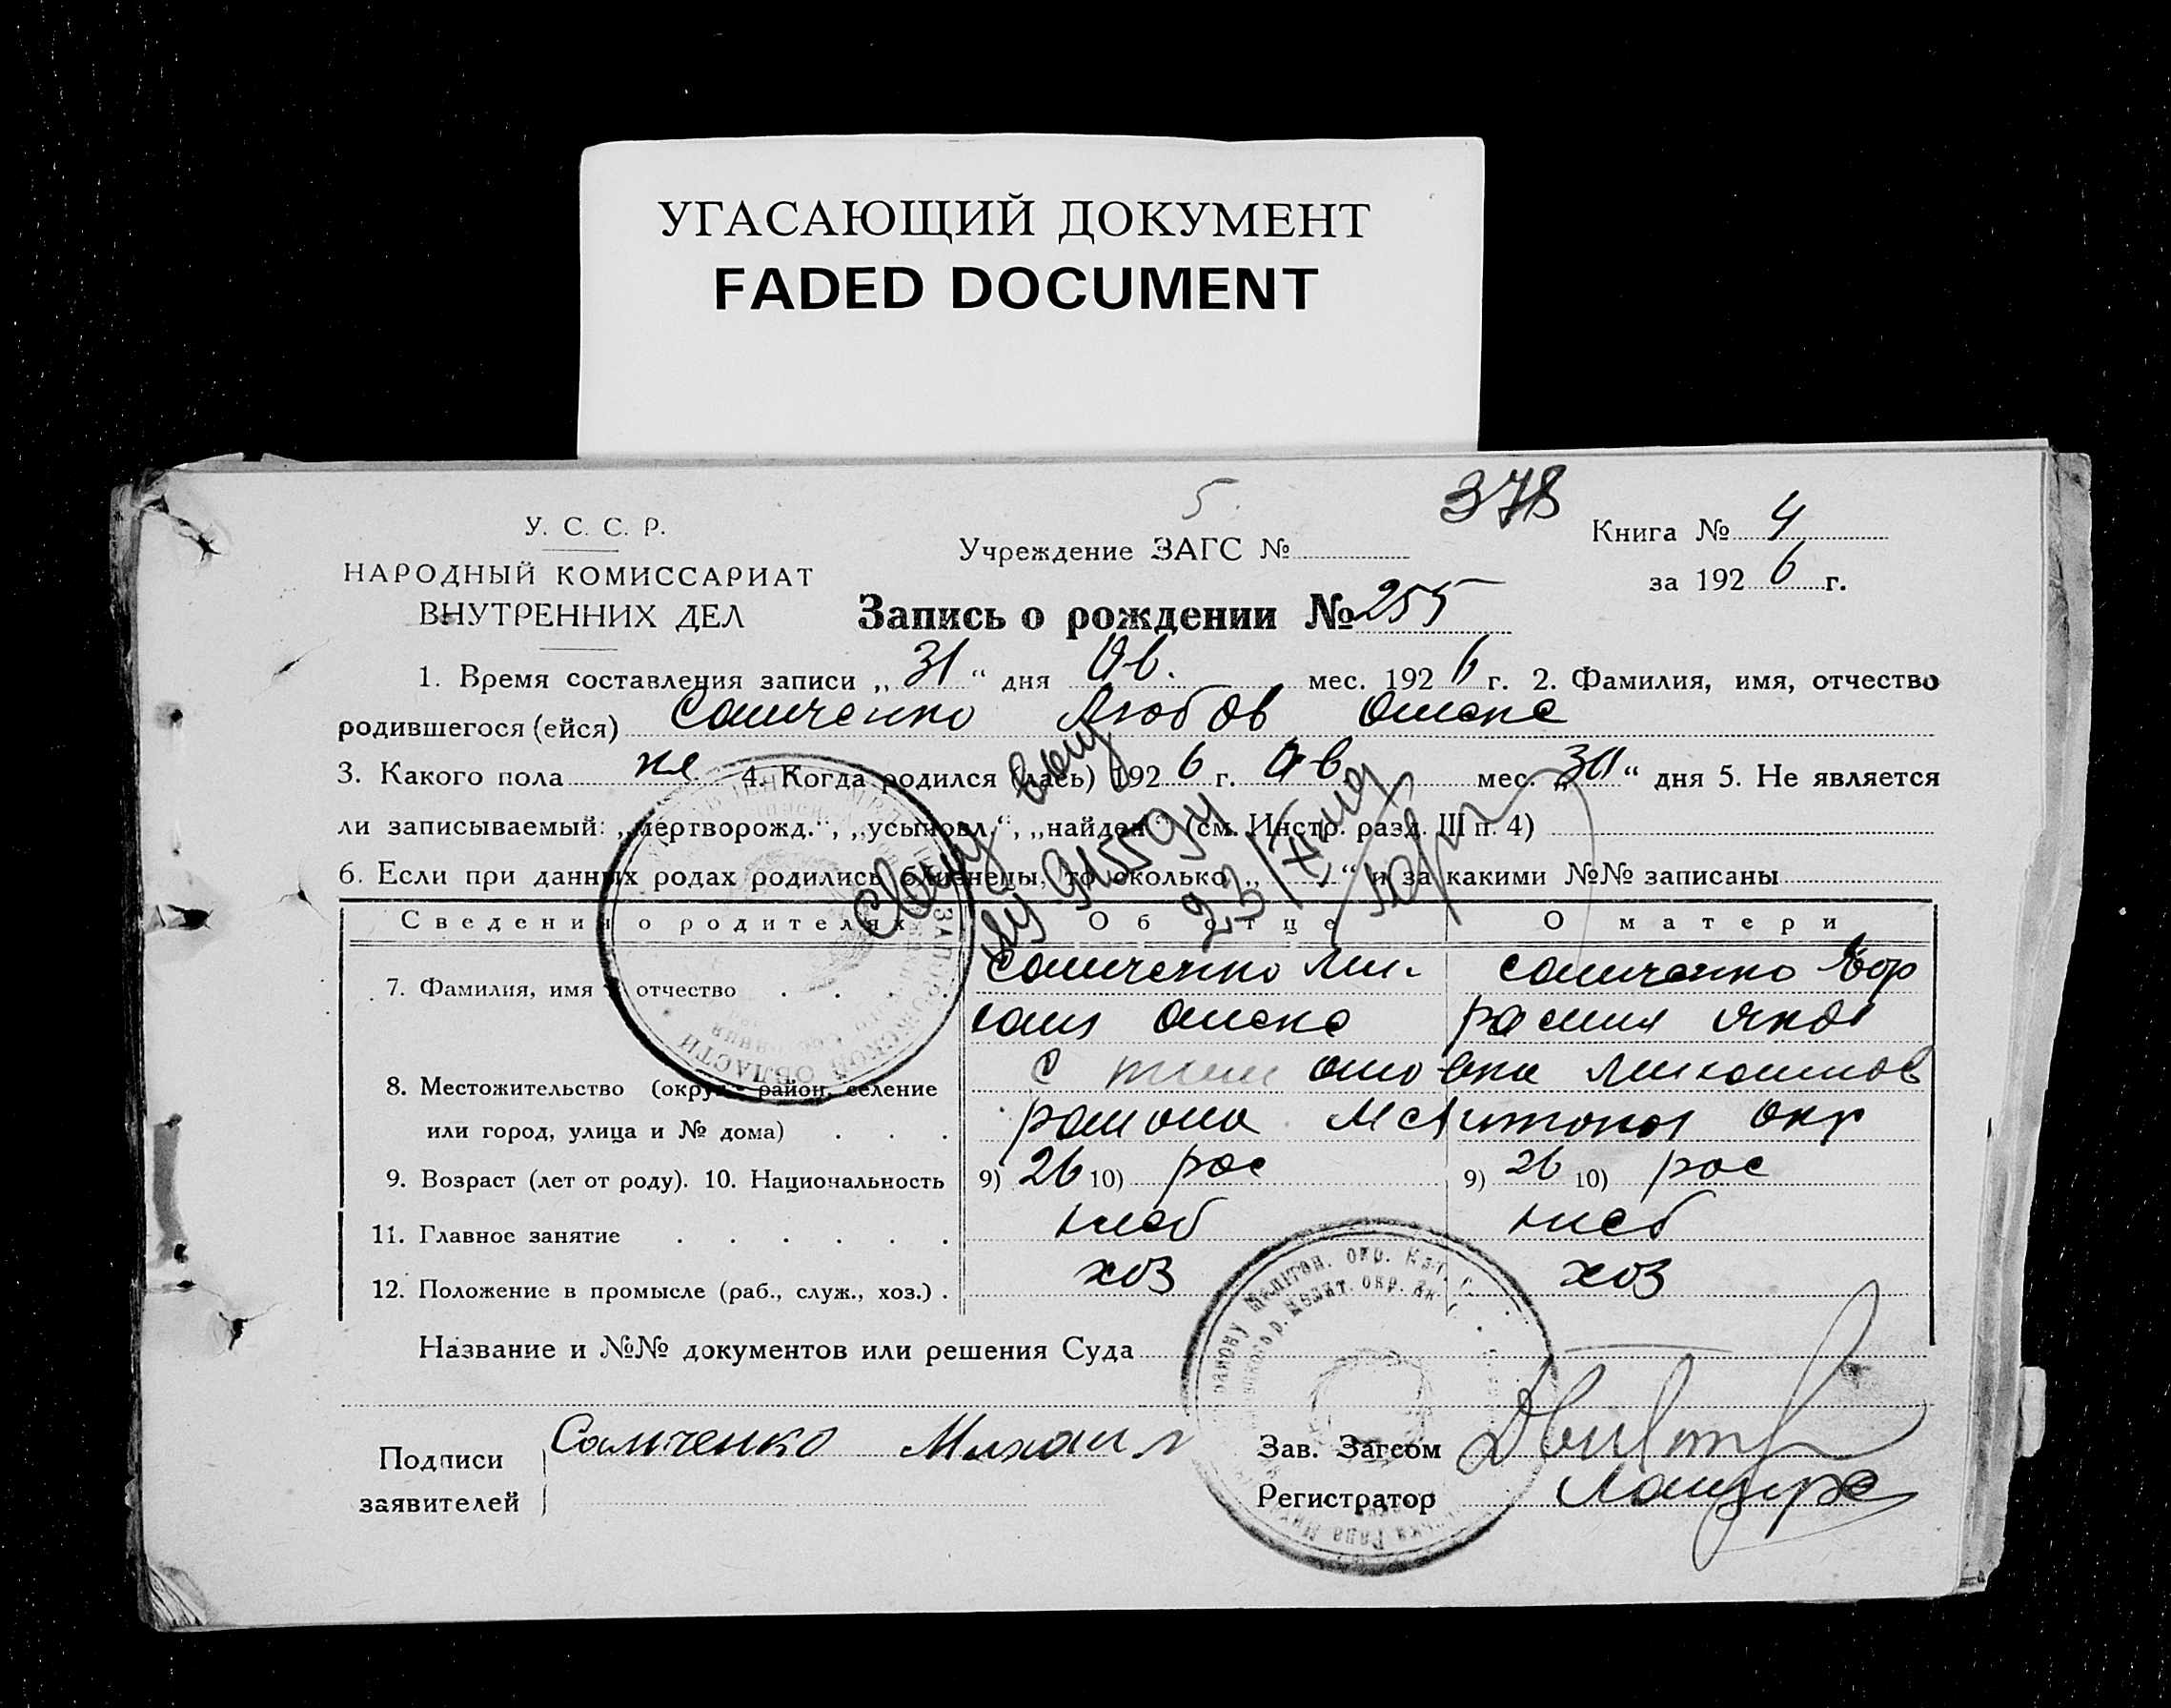 УГАСАЮЩИЙ ДОКУМЕНТ
FADED DOCUMENT
5. 378
У. С. С. Р.
НАРОДНЫЙ КОМИССАРИАТ
ВНУТРЕННИХ ДЕЛ
Учреждение ЗАГС №
Книга № 4
за 192 6 г.
Запись о рождении № 255
1. Время составления записи „ 31 “ дня Ав. мес. 192 6 г. 2. Фамилия, имя, отчество
родившегося (ейся) Самченко Любов
3. Какого пола же 4. Когда родился (лась) 192 6 г. Ав. мес. „ 30 “ дня 5. Не является
ли записываемый: „мертворожд.“, „усыновл.“, „найден“ (см. Инстр. разд. III п. 4)
6. Если при данных родах родились близнецы, то сколько „ “ и за какими №№ записаны
Сведения о родителях Об отце О матери
7. Фамилия, имя и отчество Самченко Самченко
8. Местожительство (округ, район, селение
или город, улица и № дома) района Мелитопол окр
9. Возраст (лет от роду). 10. Национальность 9) 26 10) рос 9) 26 10) рос
11. Главное занятие хлеб хлеб
12. Положение в промысле (раб., служ., хоз.) хоз хоз
Название и №№ документов или решения Суда
Подписи
заявителей
Самченко Михаил
Зав. Загсом
Регистратор